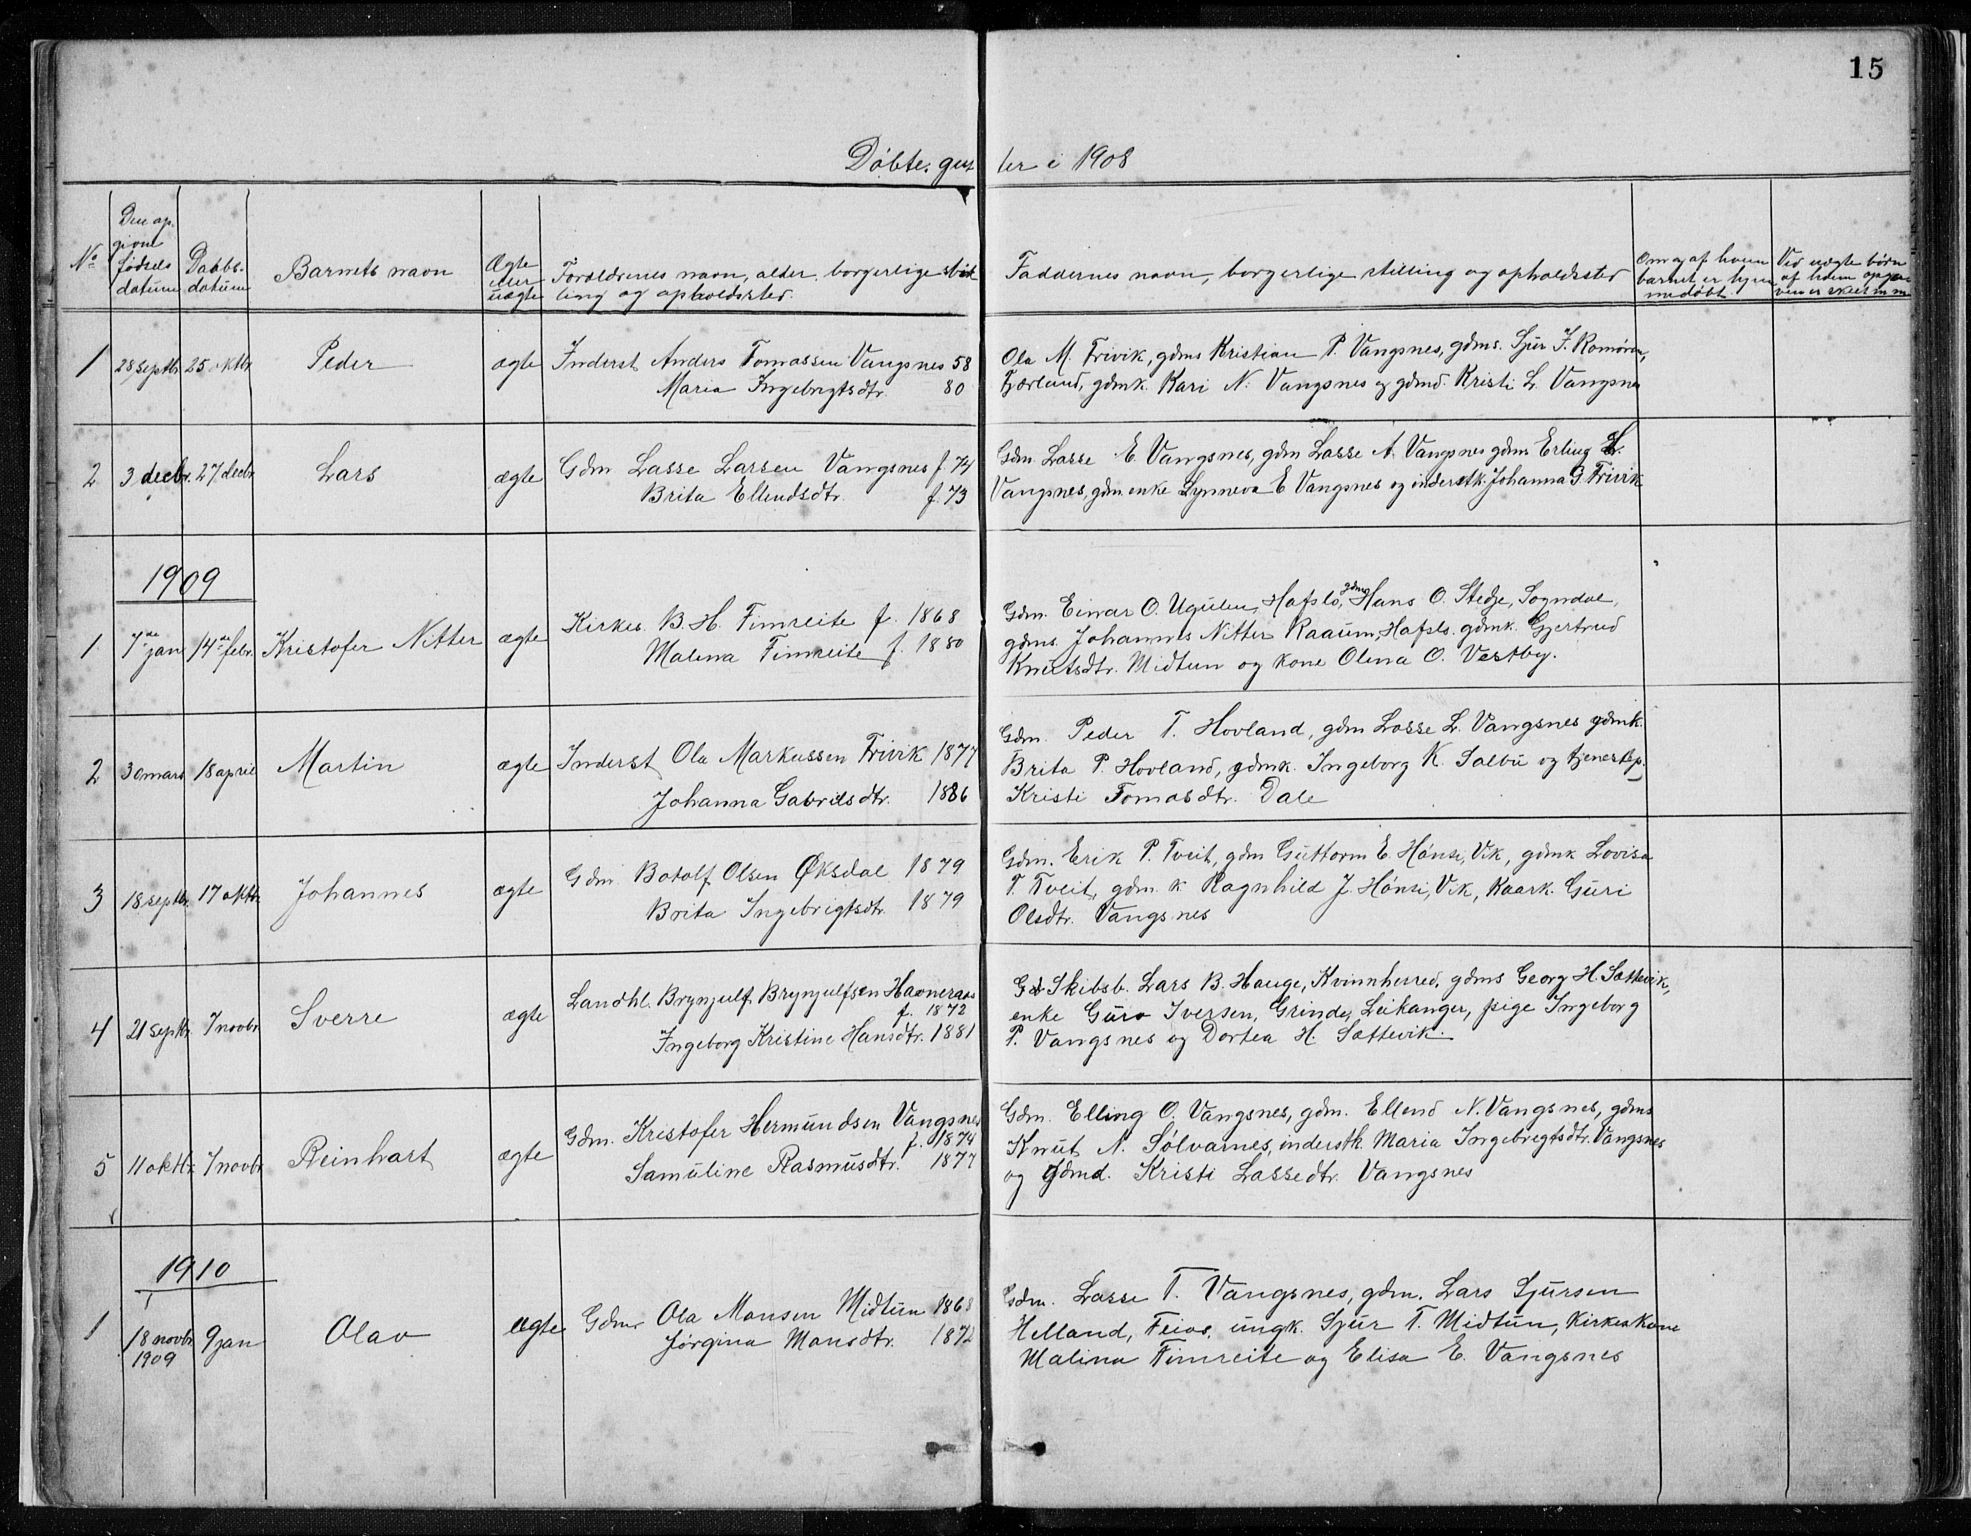 15
Døbte gut ter i 1908
No
Den op-
givne
fødsels
datum
Daabs-
datum
Barnets navn
Ægte
eller
uægte
Forældrenes navn, alder, borgerlige stil
ling og opholdssted.
Faddernes navn, borgerlige stilling og opholdssted
Om og af hvem
barnet er hjem
medøbt
Ved uægte børn
af hvem opgi
1 28 septbr 25 oktbr Peder ægte Inderst Anders Tomassen Vangsnes 58
Maria Ingebrigtsdtr. 80
Ola M. Trivik, gdms Kristian P. Vangsnes, gdms. Sjur J. Romøren,
Fjærland, gdmk. Kari N. Vangsnes og gdmd. Kristi L. Vangsnes
2 3 decbr. 27 decbr Lars ægte Gdm Lasse Larsen Vangsnes f. 74
Brita Ellendsdtr. f. 73
Gdm. Lasse E. Vangsnes, gdm Lasse A. Vangsnes gdms Erling L.
Vangsnes, gdm. enke Synneva E Vangsnes og inderstk. Johanna G. Trivik
1909
1 7de jan 14de febr. Kristofer Nitter ægte Kirkes. B. H. Fimreite f. 1868
Malena Fimreite f. 1880
Gdm. Einar O. Ugulen, Hafslo, gdms Hans O. Stedje, Sogndal,
gdms. Johannes Nitter Raaum, Hafslo. gdmk. Gjertrud
Knutsdtr. Midtun og kone Olena O. Vestby.
2 30 mars 18 april Martin ægte Inderst Ola Markussen Trivik 1877
Johanna Gabrielsdtr. 1886
Gdm. Peder T. Hovland, gdm Lasse L. Vangsnes gdmk.
Brita P. Hovland, gdmk. Ingeborg K. Salbu og tjenestep.
Kristi Tomasdtr. Dale
3 18 septbr. 17 oktbr Johannes ægte Gdm. Botolf Olsen Øksdal 1879
Brita Ingebrigtsdtr. 1879
Gdm. Erik P. Tveit, gdm Guttorm E. Hønsi, Vik, gdmk Lovisa
T. Tveit, gdm. k Ragnhild J. Hønsi, Vik, Kaark. Guri
Olsdtr. Vangsnes
4 21 septbr 7 novbr Sverre ægte Landhl. Brynjulf Brynjulfsen Havneraas
f. 1872
Ingeborg Kristine Hansdtr. 1881
Skibsb. Lars B. Hauge, Kvinnherred, gdms Georg H. Sættevik,
enke Guro Iversen, Grinde, Leikanger, pige Ingeborg
P. Vangsnes og Dortea H. Sættevik.
5 11 oktbr 7 novbr Reinhart ægte Gdm. Kristofer Hermundsen Vangsnes
f. 1874
Samuline Rasmusdtr. 1877
Gdm. Elling O. Vangsnes, gdm. Ellend N. Vangsnes, gdms
Knut N. Sølvarnes, inderstk. Maria Ingebrigtsdtr. Vangsnes
og gdmd. Kristi Lassedtr. Vangsnes
1910
1 18 novbr
1909 9 jan Olav ægte Gdmr Ola Monsen Midtun 1868
Jørgina Monsdtr. 1872
Gdm. Lasse T. Vangsnes, gdm. Lars Sjursen
Helland, Feios, ungk. Sjur T. Midtun, Kirkes kone
Malina Fimreite og Elisa E. Vangsnes